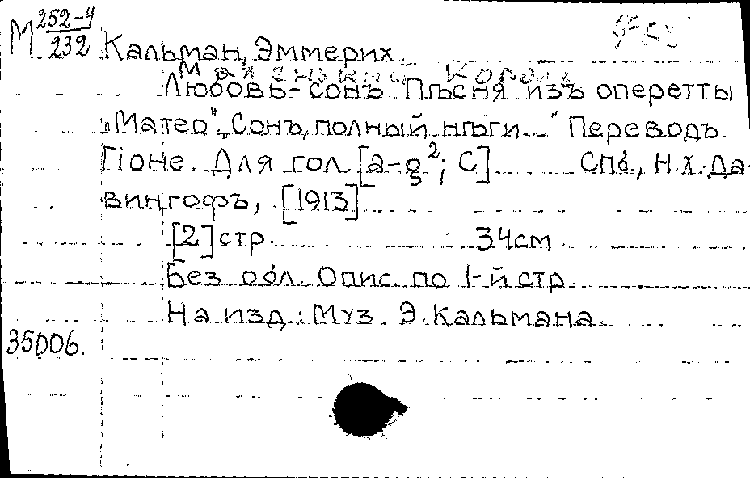 М 252-4/232
Кальман, Эммерих.
Маленький Король
Любовь-сонъ. Пѣсня изъ оперетты
„Матео". „Сонъ, полный нѣги..." Переводъ
Гіоне. Для гол. [a-g²; C] Спб., Н.Х. Да-
вингофъ, [1913]
[2] стр. 34см.
Без обл. Опис. по 1-й стр.
На изд.: Муз. Э. Кальмана.
35006.